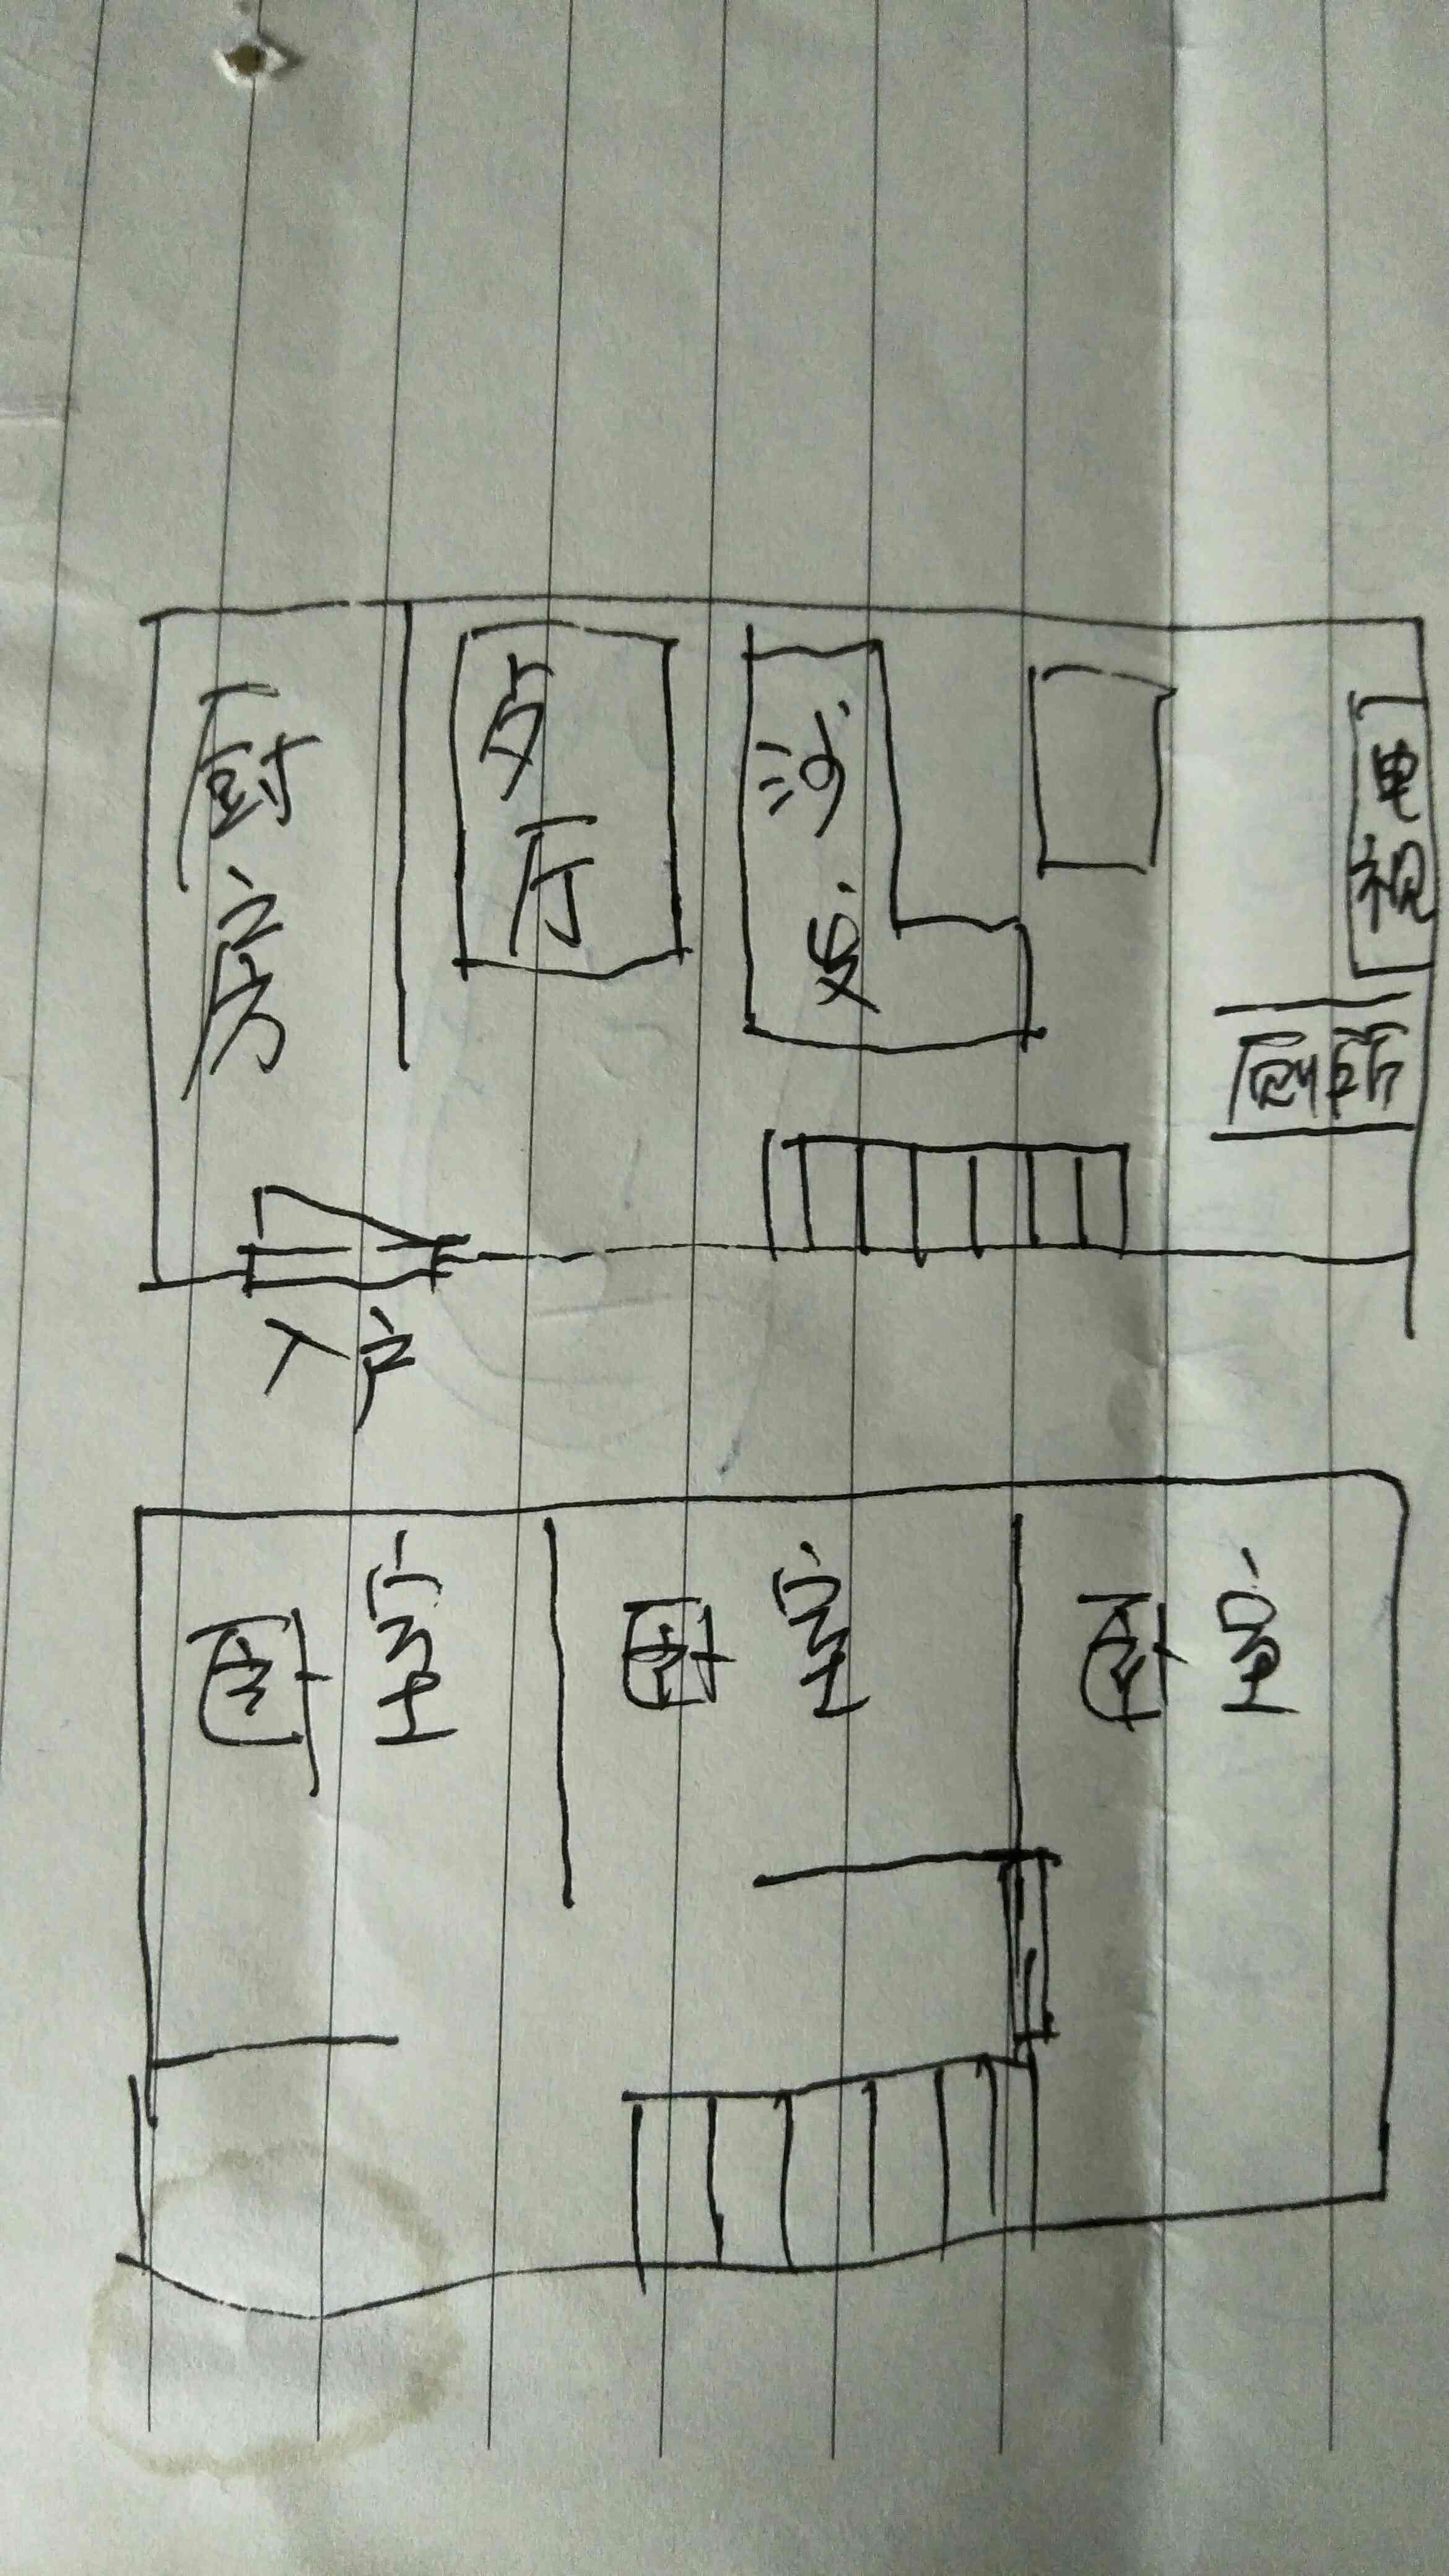 厨房
夕厅
沙发
电视
厕所
入户
卧室
卧室
卧室